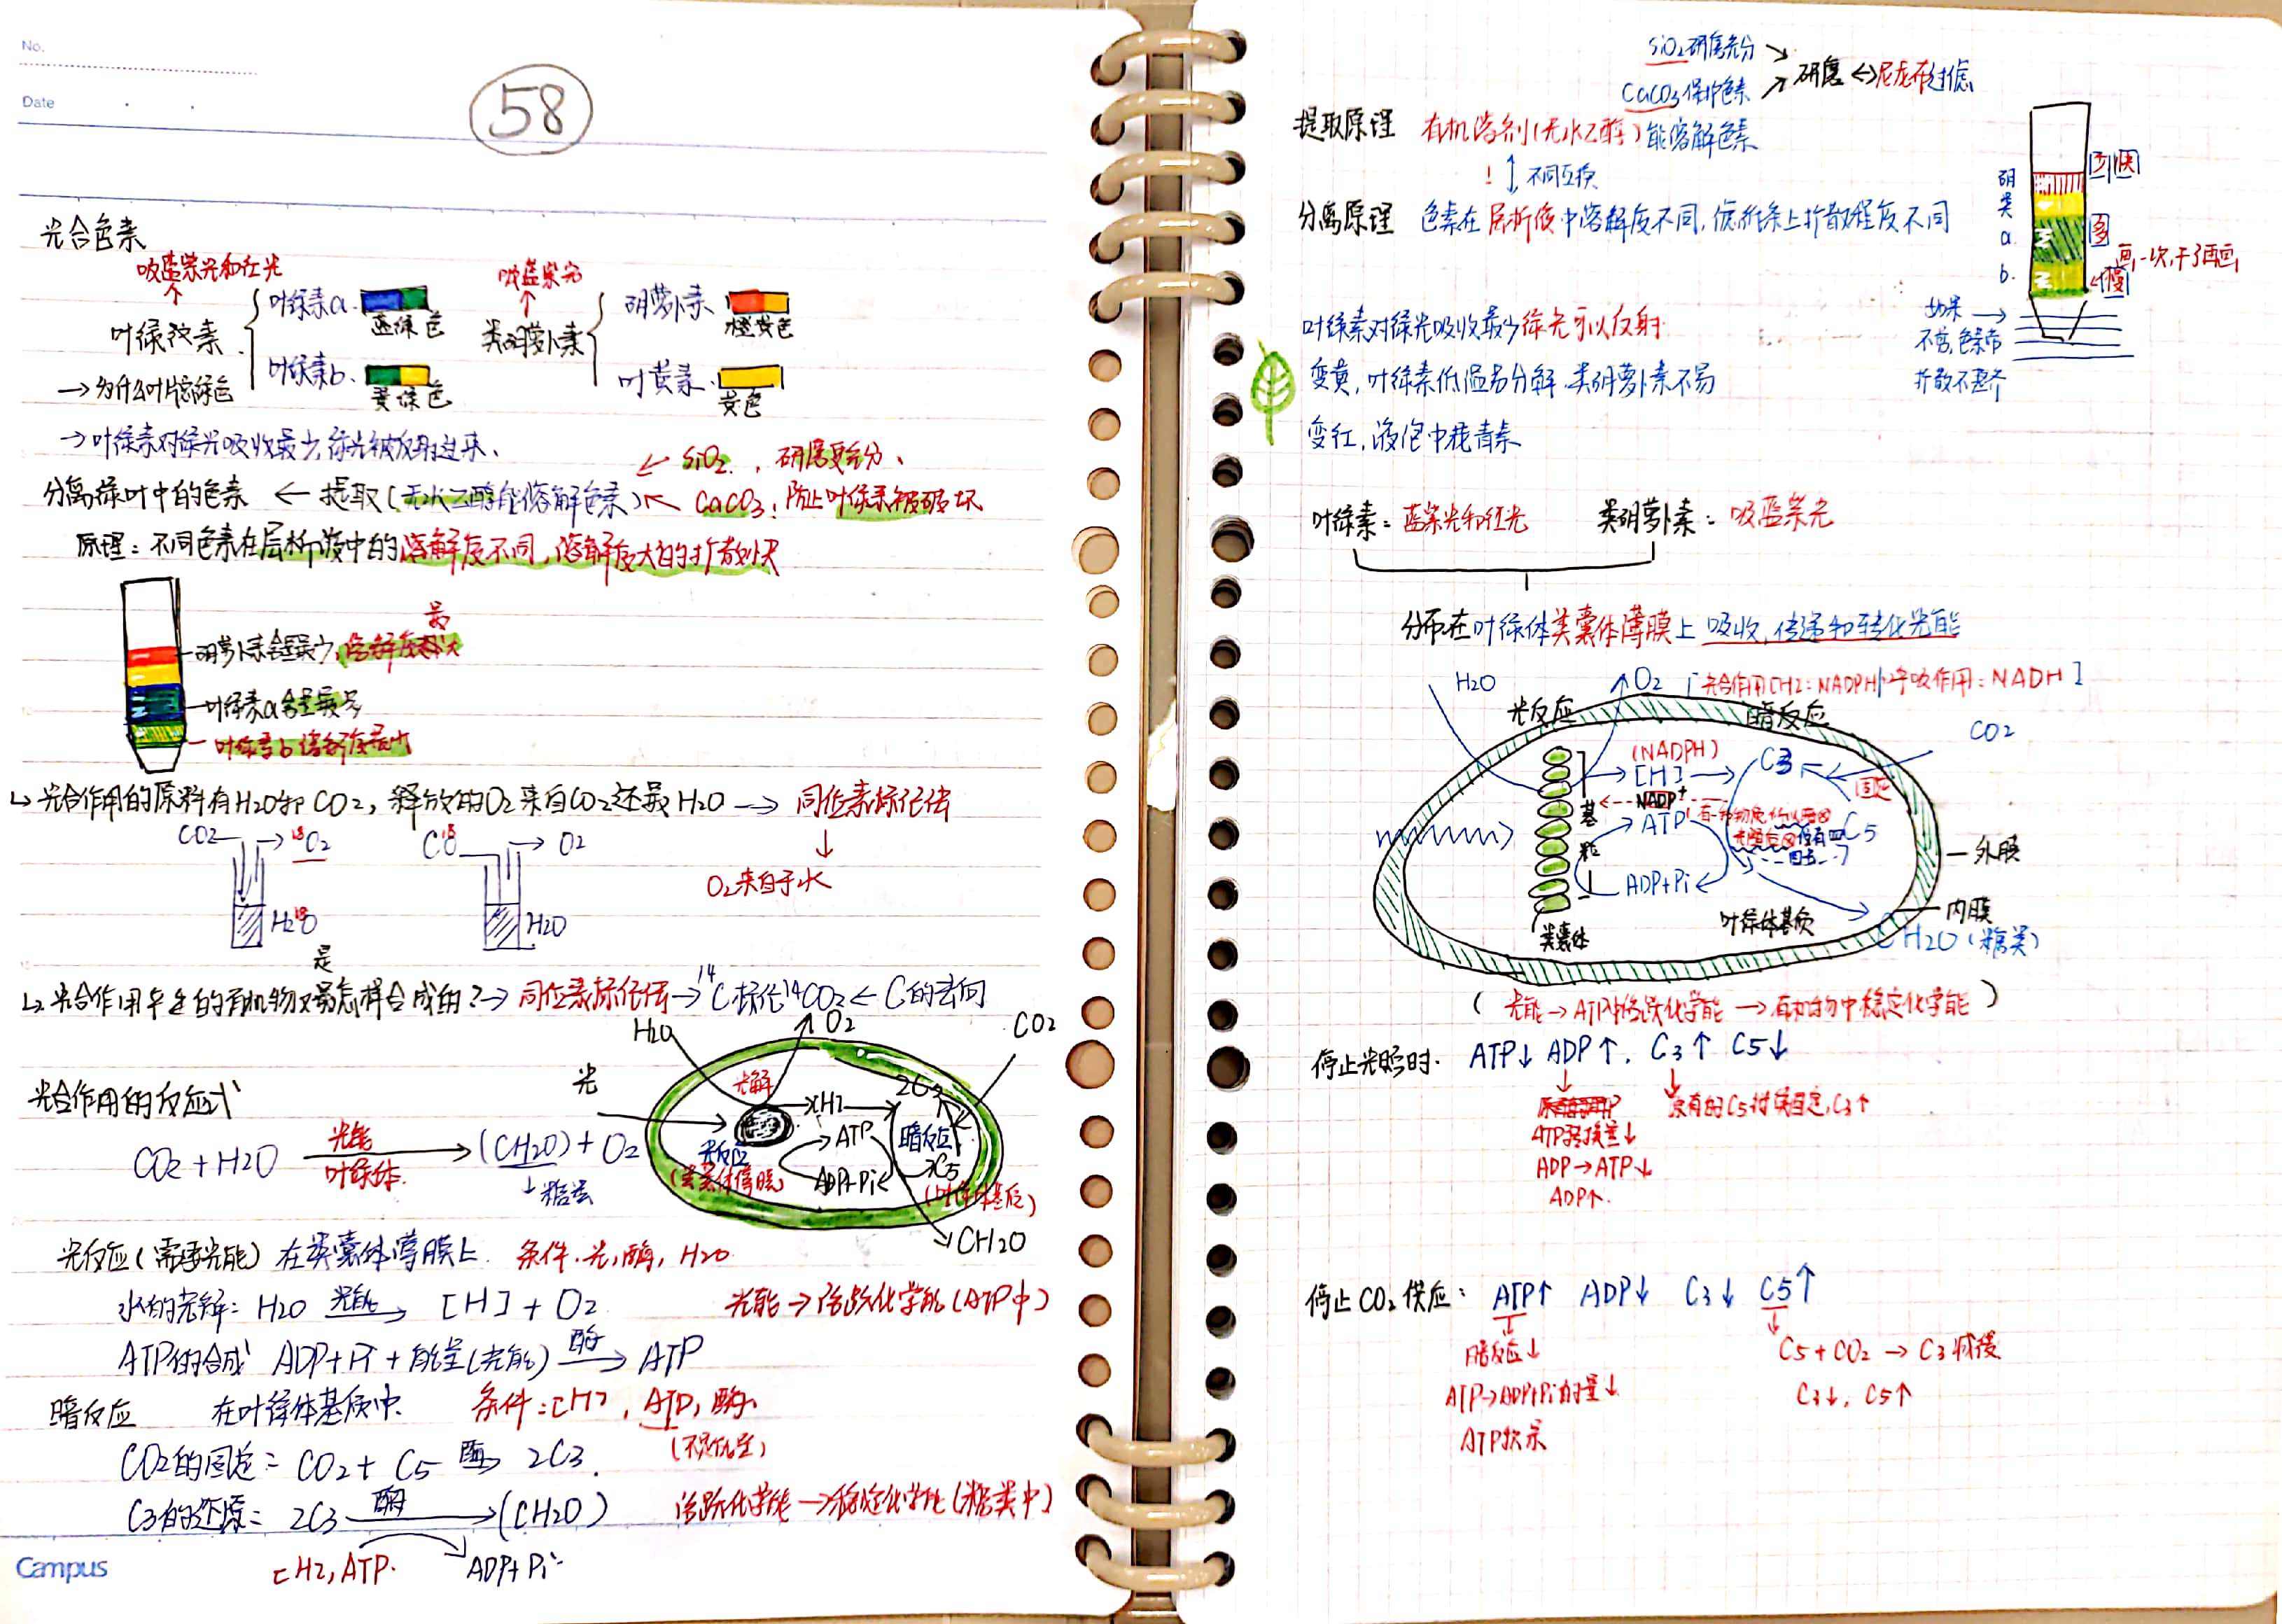 No.
Date
58
光合色素
吸蓝紫光和红光
吸蓝紫光
叶绿素a
蓝绿色
胡萝卜素
橙黄色
叶绿素
类胡萝卜素
叶绿素b
黄绿色
叶黄素
黄色
→为什么叶片绿色
→叶绿素对绿光吸收最少,绿光被反射过来、
SiO₂, 研磨更充分、
分离绿叶中的色素 ← 提取(无水乙醇能溶解色素) CaCO₃:防止叶绿素被破坏
原理:不同色素在层析液中的溶解度不同,溶解度大的扩散快
胡萝卜素含量最少,溶解度最大
叶绿素a含量最多
叶绿素b溶解度最小
↳光合作用的原料有H₂O和CO₂,释放的O₂来自CO₂还是H₂O → 同位素标记法
CO₂ → ¹⁸O₂
C¹⁸O → O₂
O₂来自于水
H₂¹⁸O
H₂O
↳光合作用产生的有机物又是怎样合成的?→同位素标记法→¹⁴C标记¹⁴CO₂←C的去向
H₂O
O₂
CO₂
光合作用的反应式
光
光解
[H]
2C₃
ATP
暗反应
CO₂+H₂O 光能 叶绿体 → (CH₂O)+O₂
↓糖类
光反应
(类囊体薄膜)
ADP+Pi
C₅
(叶绿体基质)
CH₂O
光反应(需要光能)在类囊体薄膜上 条件:光,酶,H₂O
水的光解:H₂O 光能→ [H]+O₂
光能→活跃化学能(ATP中)
ATP的合成 ADP+Pi+能量(光能) 酶→ ATP
暗反应 在叶绿体基质中. 条件:[H],ATP,酶.
CO₂的固定:CO₂+C₅ 酶→ 2C₃.
C₃的还原:2C₃ 酶→ (CH₂O)
活跃化学能→稳定化学能(糖类中)
[H],ATP. ADP+Pi
Campus
SiO₂研磨充分
CaCO₃保护色素
研磨↔尼龙布过滤
提取原理 有机溶剂(无水乙醇)能溶解色素
! ↕不同互换
分离原理 色素在层析液中溶解度不同,滤纸条上扩散程度不同
胡
黄
a.
b.
少快
多
慢
画一次,干了再画
如果
不剪,色素带
扩散不整齐
叶绿素对绿光吸收最少绿光可以反射
变黄,叶绿素低温易分解.类胡萝卜素不易
变红,液泡中花青素
叶绿素:蓝紫光和红光 类胡萝卜素:吸蓝紫光
分布在叶绿体类囊体薄膜上 吸收,传递和转化光能
H₂O
O₂ [光合作用[H]:NADPH 呼吸作用:NADH]
光反应
暗反应
CO₂
(NADPH)
[H]
C₃
固定
基
粒
NADP⁺
ATP
C₅
外膜
ADP+Pi
类囊体
叶绿体基质
内膜
CH₂O(糖类)
(光能→ATP中活跃化学能→有机物中稳定化学能)
停止光照时. ATP↓ ADP↑. C₃↑ C₅↓
原有的C₅持续固定,C₃↑
ATP转换量↓
ADP→ATP↓
ADP↑.
停止CO₂供应: ATP↑ ADP↓ C₃↓ C₅↑
暗反应↓
C₅+CO₂→C₃减慢
ATP→ADP+Pi的量↓
C₃↓, C₅↑
ATP积累